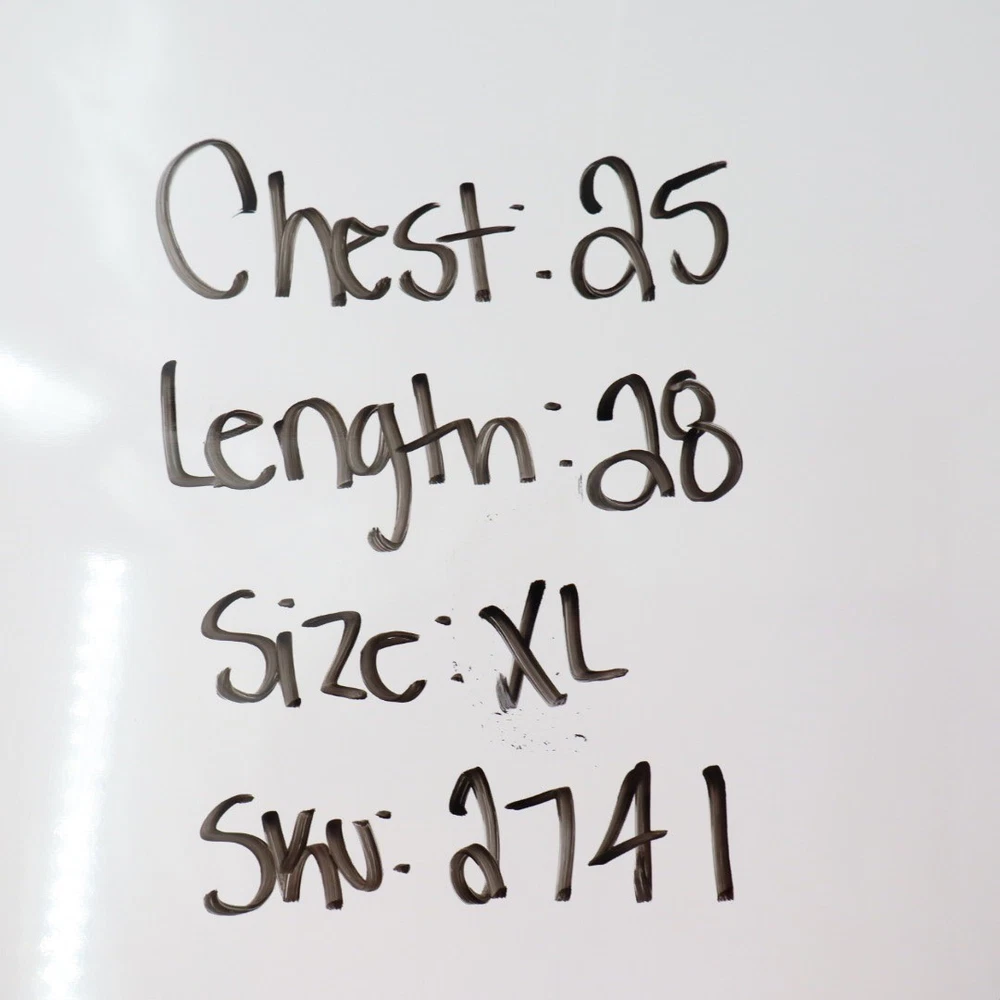 Chest: 25
Length: 28
Size: XL
Sku: 2741